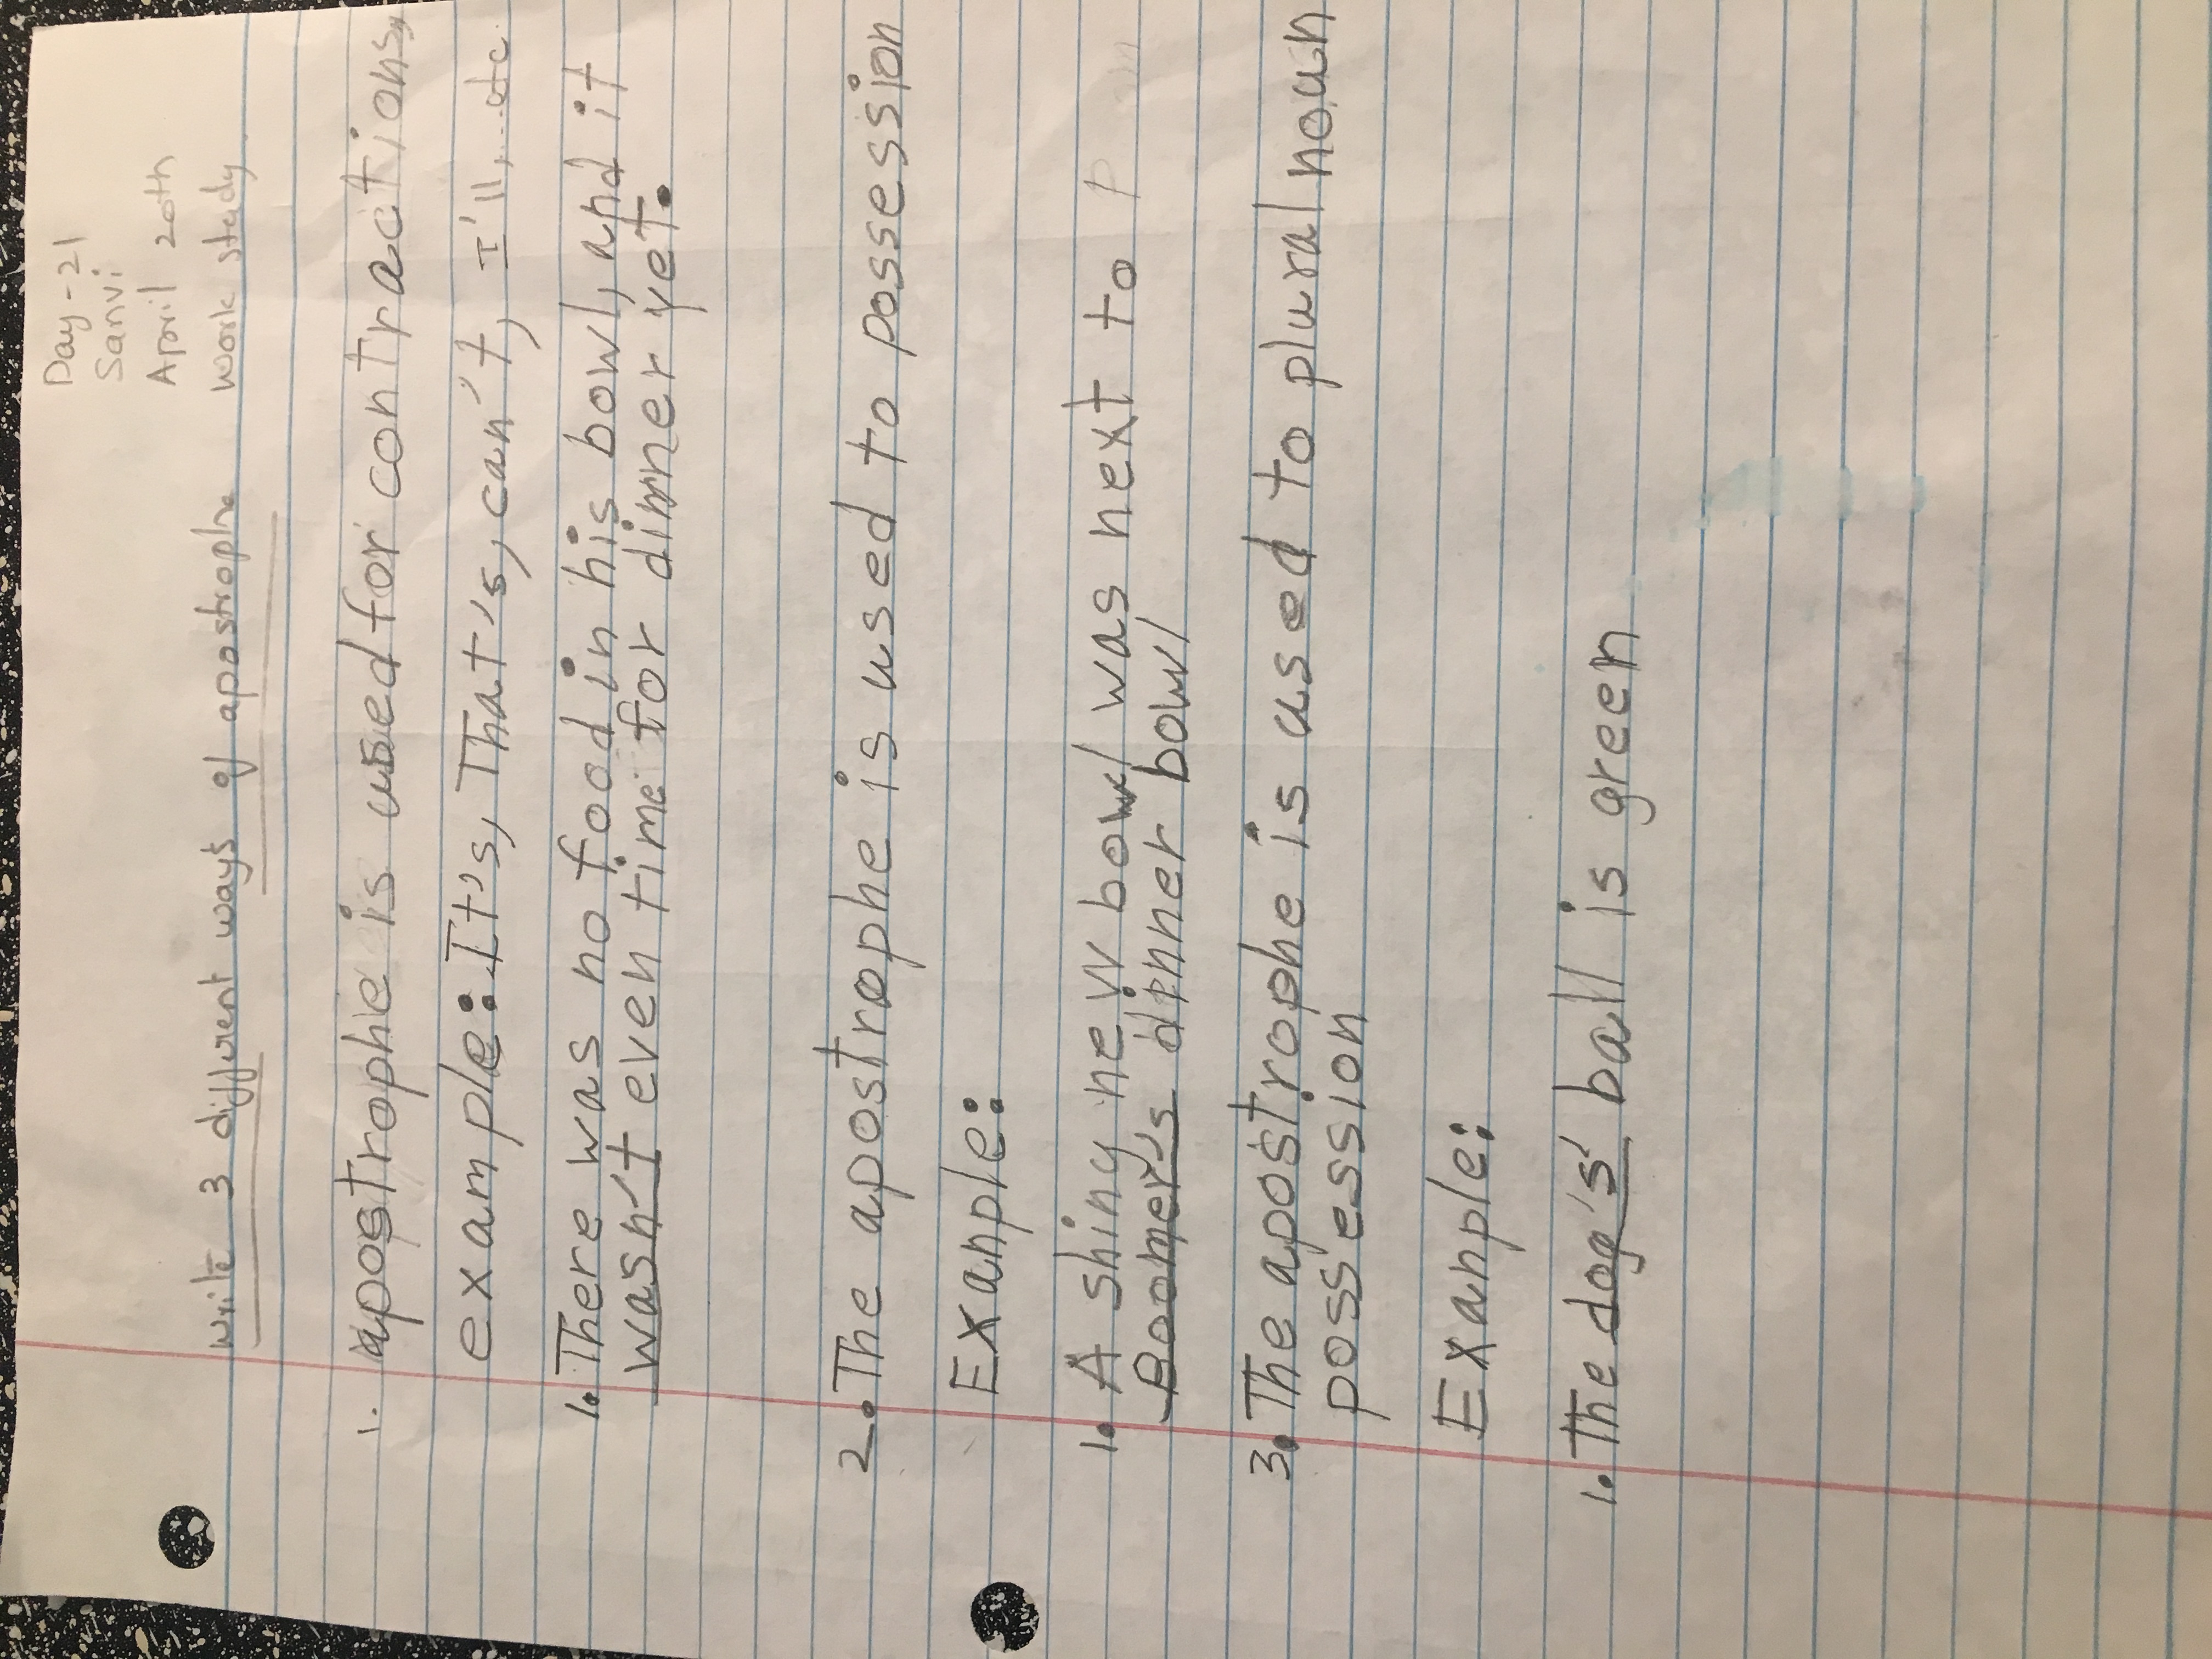 Day - 21
Sanvi
April 20th
Work study
Write 3 different ways of apostrophe
1. apostrophe is used for contractions,
example: It's, That's, can't, I'll, ...etc.
1. There was no food in his bowl, and it
wasn't even time for dinner yet.
2. The apostrophe is used to possession
Exanple:
1. A shiny new bowl was next to
Boomer's dinner bowl
3. The apostrophe is used to plural noun
possession
Exanple:
1. The dog's' ball is green